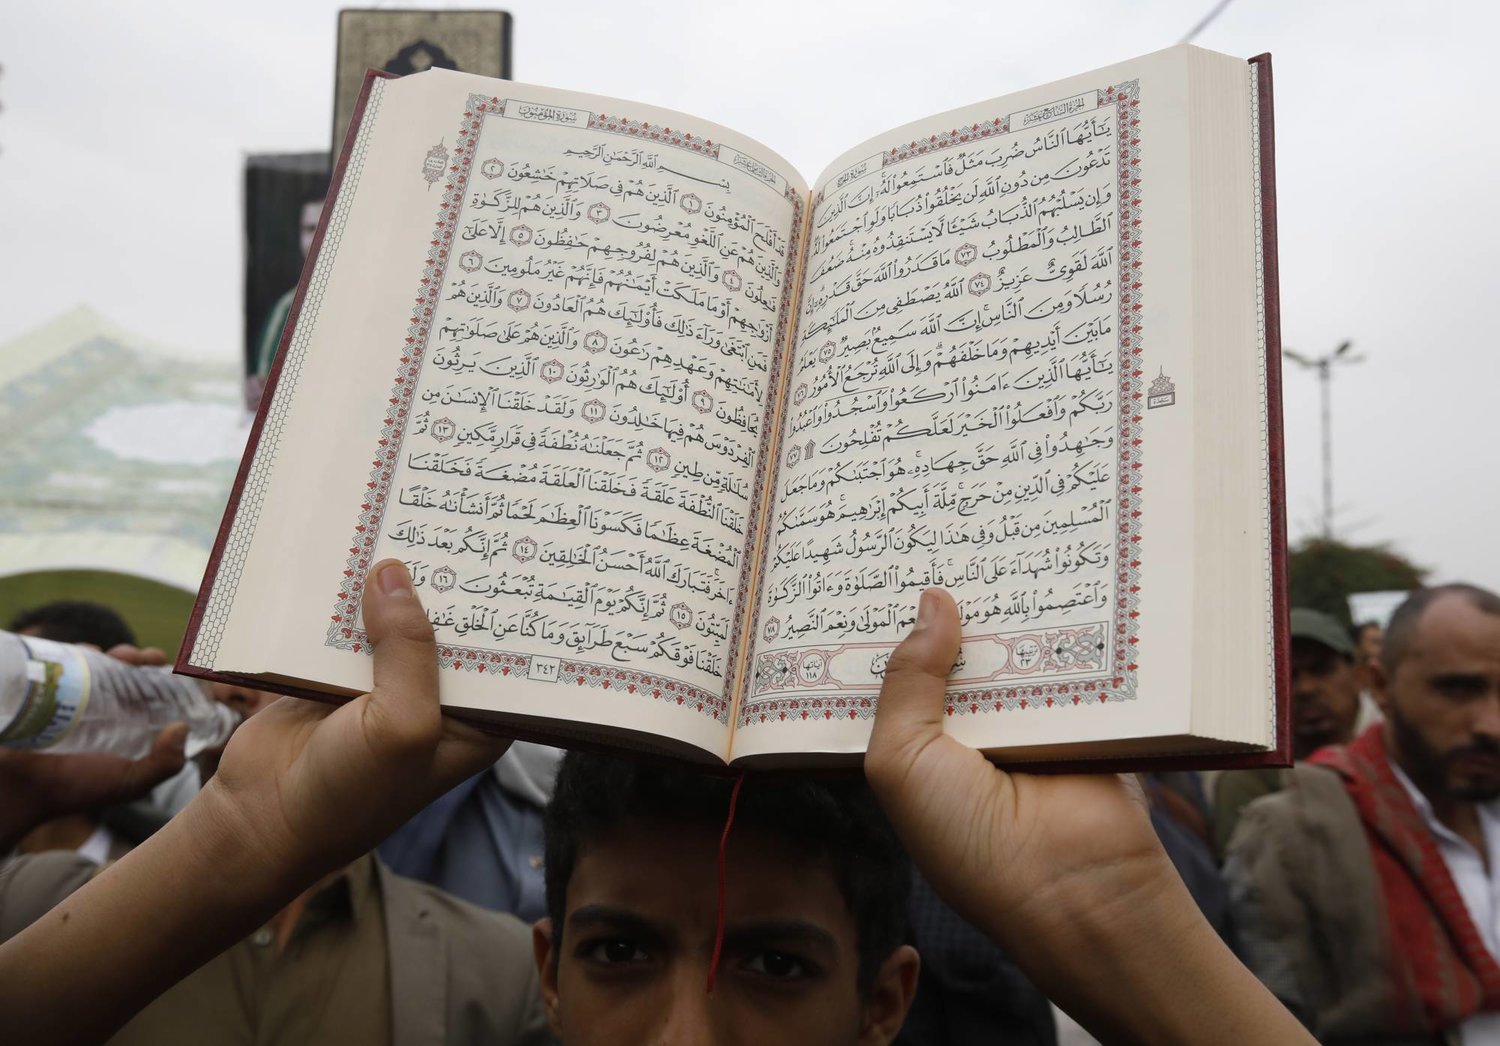 الجزء السابع عشر سورة الحج
يَٰٓأَيُّهَا ٱلنَّاسُ ضُرِبَ مَثَلٌ فَٱسْتَمِعُوا۟ لَهُۥٓ ۚ إِنَّ ٱلَّذِينَ
تَدْعُونَ مِن دُونِ ٱللَّهِ لَن يَخْلُقُوا۟ ذُبَابًا وَلَوِ ٱجْتَمَعُوا۟ لَهُۥ ۖ
وَإِن يَسْلُبْهُمُ ٱلذُّبَابُ شَيْـًٔا لَّا يَسْتَنقِذُوهُ مِنْهُ ۚ ضَعُفَ
ٱلطَّالِبُ وَٱلْمَطْلُوبُ ٧٣ مَا قَدَرُوا۟ ٱللَّهَ حَقَّ قَدْرِهِۦٓ ۗ إِنَّ
ٱللَّهَ لَقَوِىٌّ عَزِيزٌ ٧٤ ٱللَّهُ يَصْطَفِى مِنَ ٱلْمَلَٰٓئِكَةِ
رُسُلًا وَمِنَ ٱلنَّاسِ ۚ إِنَّ ٱللَّهَ سَمِيعٌۢ بَصِيرٌ ٧٥ يَعْلَمُ
مَا بَيْنَ أَيْدِيهِمْ وَمَا خَلْفَهُمْ ۗ وَإِلَى ٱللَّهِ تُرْجَعُ ٱلْأُمُورُ ٧٦
يَٰٓأَيُّهَا ٱلَّذِينَ ءَامَنُوا۟ ٱرْكَعُوا۟ وَٱسْجُدُوا۟ وَٱعْبُدُوا۟
رَبَّكُمْ وَٱفْعَلُوا۟ ٱلْخَيْرَ لَعَلَّكُمْ تُفْلِحُونَ ۩ ٧٧
وَجَٰهِدُوا۟ فِى ٱللَّهِ حَقَّ جِهَادِهِۦ ۚ هُوَ ٱجْتَبَىٰكُمْ وَمَا جَعَلَ
عَلَيْكُمْ فِى ٱلدِّينِ مِنْ حَرَجٍ ۚ مِّلَّةَ أَبِيكُمْ إِبْرَٰهِيمَ ۚ هُوَ سَمَّىٰكُمُ
ٱلْمُسْلِمِينَ مِن قَبْلُ وَفِى هَٰذَا لِيَكُونَ ٱلرَّسُولُ شَهِيدًا عَلَيْكُمْ
وَتَكُونُوا۟ شُهَدَآءَ عَلَى ٱلنَّاسِ ۚ فَأَقِيمُوا۟ ٱلصَّلَوٰةَ وَءَاتُوا۟ ٱلزَّكَوٰةَ
وَٱعْتَصِمُوا۟ بِٱللَّهِ هُوَ ٱلْمَوْلَىٰ وَنِعْمَ ٱلنَّصِيرُ ٧٨
ترتيبها ٢٣ آياتها ١١٨
سجدة
سورة المؤمنون الجزء الثامن عشر
بِسْمِ ٱللَّهِ ٱلرَّحْمَٰنِ ٱلرَّحِيمِ
قَدْ أَفْلَحَ ٱلْمُؤْمِنُونَ ١ ٱلَّذِينَ هُمْ فِى صَلَاتِهِمْ خَٰشِعُونَ ٢
وَٱلَّذِينَ هُمْ عَنِ ٱللَّغْوِ مُعْرِضُونَ ٣ وَٱلَّذِينَ هُمْ لِلزَّكَوٰةِ
فَٰعِلُونَ ٤ وَٱلَّذِينَ هُمْ لِفُرُوجِهِمْ حَٰفِظُونَ ٥ إِلَّا عَلَىٰٓ
أَزْوَٰجِهِمْ أَوْ مَا مَلَكَتْ أَيْمَٰنُهُمْ فَإِنَّهُمْ غَيْرُ مَلُومِينَ ٦
فَمَنِ ٱبْتَغَىٰ وَرَآءَ ذَٰلِكَ فَأُو۟لَٰٓئِكَ هُمُ ٱلْعَادُونَ ٧ وَٱلَّذِينَ هُمْ
لِأَمَٰنَٰتِهِمْ وَعَهْدِهِمْ رَٰعُونَ ٨ وَٱلَّذِينَ هُمْ عَلَىٰ صَلَوَٰتِهِمْ
يُحَافِظُونَ ٩ أُو۟لَٰٓئِكَ هُمُ ٱلْوَٰرِثُونَ ١٠ ٱلَّذِينَ يَرِثُونَ
ٱلْفِرْدَوْسَ هُمْ فِيهَا خَٰلِدُونَ ١١ وَلَقَدْ خَلَقْنَا ٱلْإِنسَٰنَ مِن
سُلَٰلَةٍ مِّن طِينٍ ١٢ ثُمَّ جَعَلْنَٰهُ نُطْفَةً فِى قَرَارٍ مَّكِينٍ ١٣ ثُمَّ
خَلَقْنَا ٱلنُّطْفَةَ عَلَقَةً فَخَلَقْنَا ٱلْعَلَقَةَ مُضْغَةً فَخَلَقْنَا
ٱلْمُضْغَةَ عِظَٰمًا فَكَسَوْنَا ٱلْعِظَٰمَ لَحْمًا ثُمَّ أَنشَأْنَٰهُ خَلْقًا
ءَاخَرَ ۚ فَتَبَارَكَ ٱللَّهُ أَحْسَنُ ٱلْخَٰلِقِينَ ١٤ ثُمَّ إِنَّكُم بَعْدَ ذَٰلِكَ
لَمَيِّتُونَ ١٥ ثُمَّ إِنَّكُمْ يَوْمَ ٱلْقِيَٰمَةِ تُبْعَثُونَ ١٦
خَلَقْنَا فَوْقَكُمْ سَبْعَ طَرَآئِقَ وَمَا كُنَّا عَنِ ٱلْخَلْقِ
٣٤٢